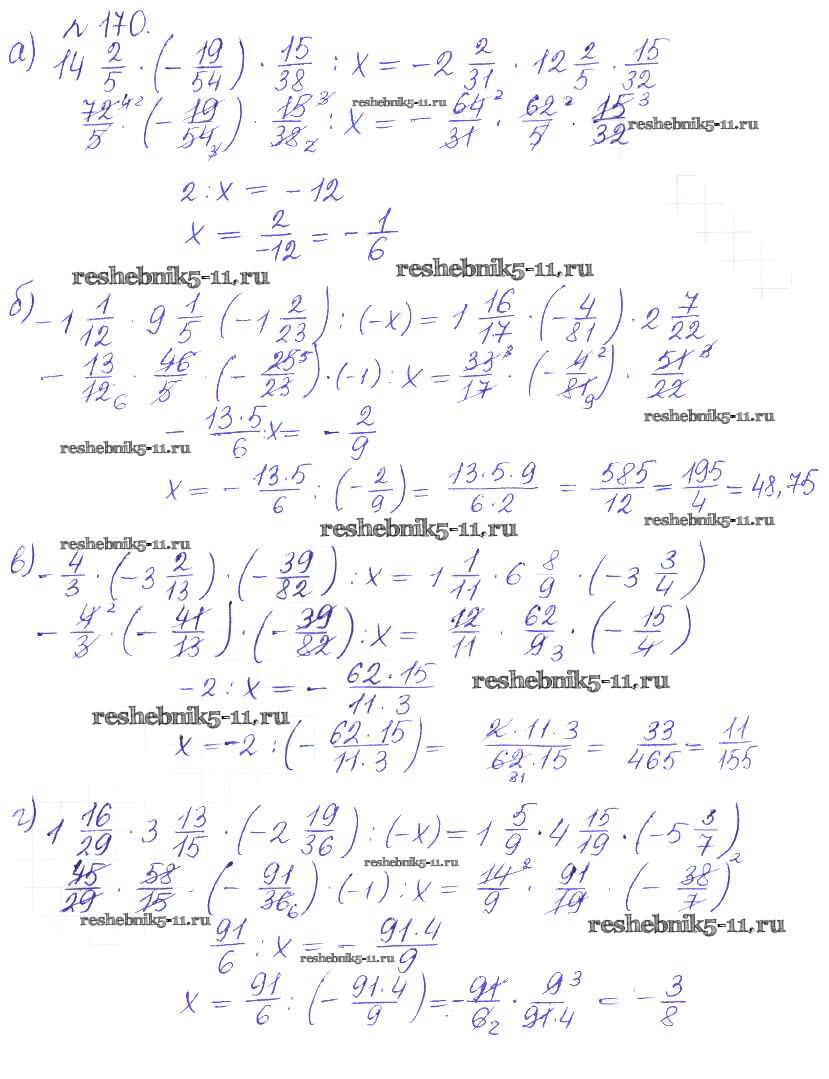 № 170.
а) 14 2/5 · (- 19/54) · 15/38 : x = -2 2/31 · 12 2/5 · 15/32
reshebnik5-11.ru
72/5 · (- 19/54) · 15/38 : x = - 64/31 · 62/5 · 15/32
reshebnik5-11.ru
2 : x = -12
x = 2/-12 = - 1/6
reshebnik5-11.ru reshebnik5-11.ru
б) -1 1/12 · 9 1/5 (-1 2/23) : (-x) = 1 16/17 · (- 4/81) · 2 7/22
- 13/12 · 46/5 · (- 25/23) · (-1) : x = 33/17 · (- 4/81) · 51/22
reshebnik5-11.ru
- 13·5/6 : x = - 2/9
reshebnik5-11.ru
x = - 13·5/6 : (- 2/9) = 13·5·9/6·2 = 585/12 = 195/4 = 48,75
reshebnik5-11.ru reshebnik5-11.ru
reshebnik5-11.ru
в) - 4/3 · (-3 2/13) · (- 39/82) : x = 1 1/11 · 6 8/9 · (-3 3/4)
- 4/3 · (- 41/13) · (- 39/82) : x = 12/11 · 62/9 · (- 15/4)
-2 : x = - 62·15/11·3
reshebnik5-11.ru
reshebnik5-11.ru
x = -2 : (- 62·15/11·3) = 2·11·3/62·15 = 33/465 = 11/155
г) 1 16/29 · 3 13/15 · (-2 19/36) : (-x) = 1 5/9 · 4 15/19 · (-5 3/7)
reshebnik5-11.ru
45/29 · 58/15 · (- 91/36) · (-1) : x = 14/9 · 91/19 · (- 38/7)
reshebnik5-11.ru reshebnik5-11.ru
91/6 : x = - 91·4/9
reshebnik5-11.ru
x = 91/6 : (- 91·4/9) = - 91/6 · 9/91·4 = - 3/8